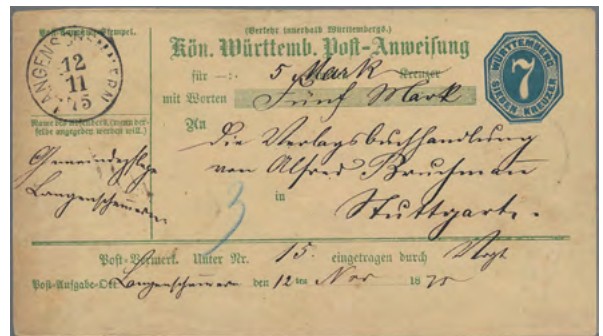 Post-Aufgabe-Stempel.
LANGENSCHEMMERN
12
11
75
(Verkehr innerhalb Württembergs.)
Kön. Württemb. Post-Anweisung
für —: 5 Mark Kreuzer
mit Worten Fünf Mark
WÜRTTEMBERG
7
SIEBEN KREUZER
An
Name des Absenders (wenn der-
selbe angegeben werden will.)
Gemeindepflege
Langenschemmern
die Verlagsbuchhandlung
von Alfred Bruchmann
in
Stuttgart.
3
Post-Vermerk. Unter Nr. 15. eingetragen durch Vogt
Post-Aufgabe-Ort Langenschemmern den 12 ten Nov 1875